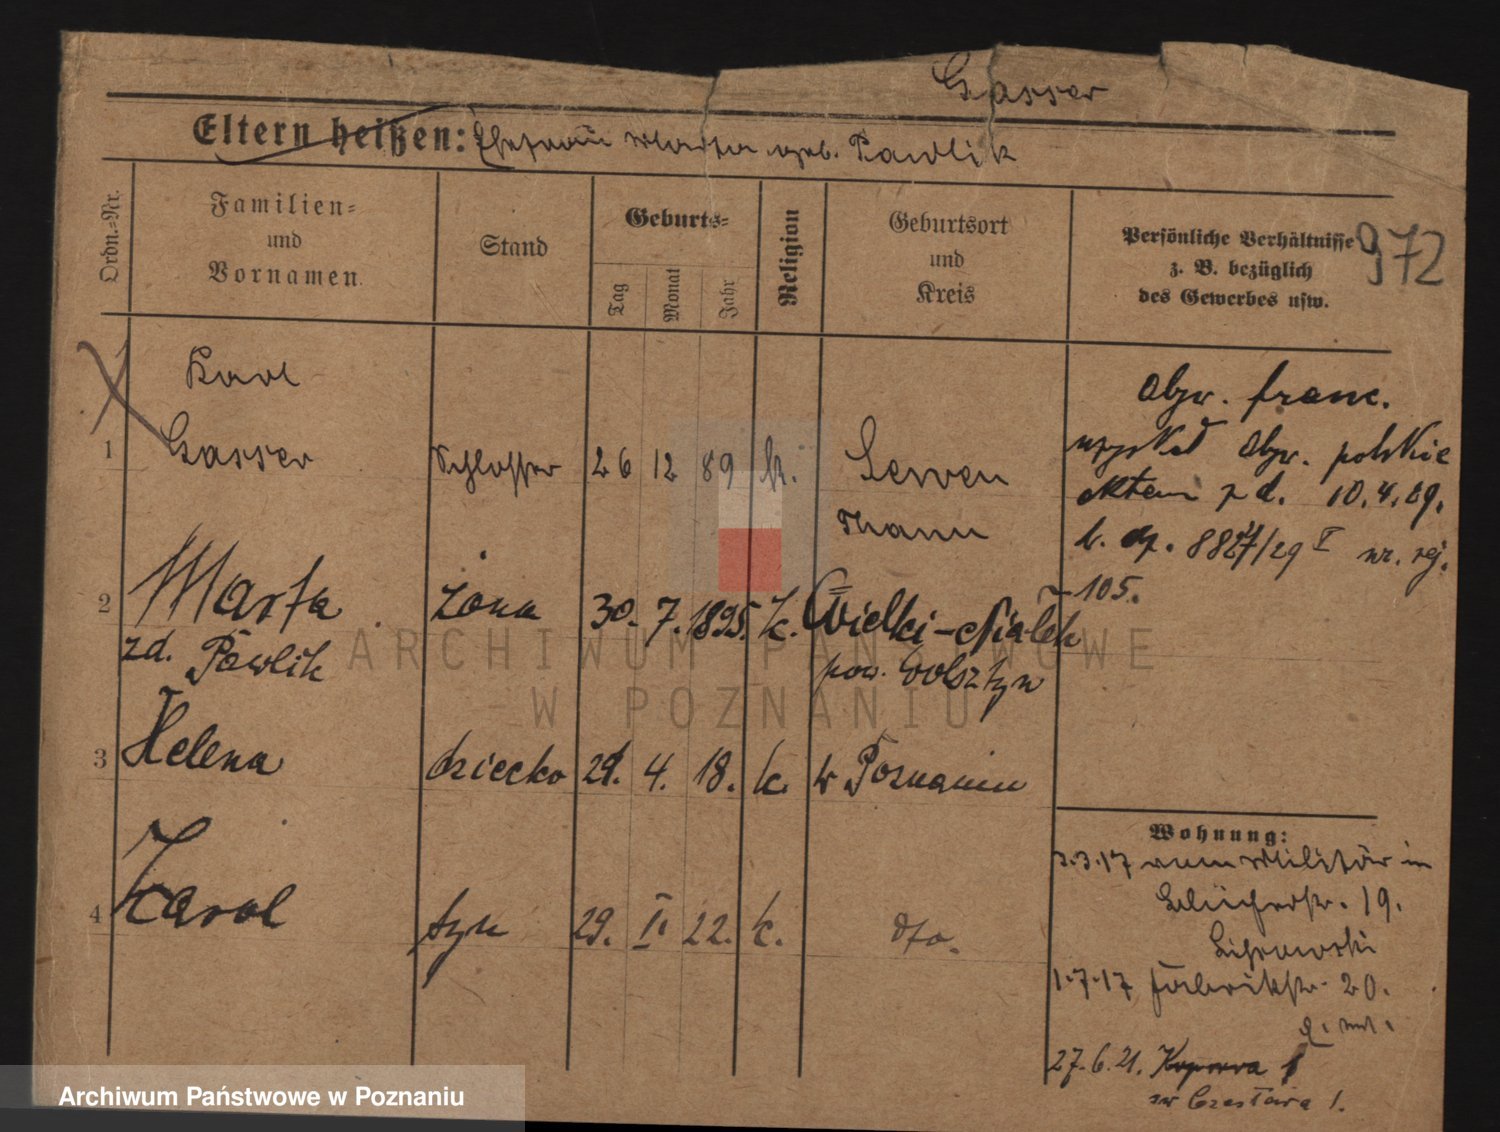 Gasser
Eltern heißen: Ehefrau Martha geb. Pawlik
Ordn.-Nr.
Familien=
und
Vornamen.
Stand
Geburts=
Tag
Monat
Jahr
Religion
Geburtsort
und
Kreis
Persönliche Verhältnisse
z. B. bezüglich
des Gewerbes usw.
972
Karl
1 Gasser Schlosser 26 12 89 k. Sewen
Thann
obyw. franc.
uzyskał obyw. polskie
aktem z d. 10.4.29.
L. dz. 8827/29 I nr. rej.
105.
2 Marta żona 30. 7. 1895. k. Wielki-
zd. Pawlik pow. Wolsztyn
3 Helena dziecko 29. 4. 18. k. w Poznaniu
4 Karol syn 29. II. 22. k. dto.
Wohnung:
3.3.17 vom Militär in
Blücherstr. 19.
1.7.17 Fabrikstr. 20.
27.6.21.
św Czesława 1.
ARCHIWUM PAŃSTWOWE
W POZNANIU
Archiwum Państwowe w Poznaniu